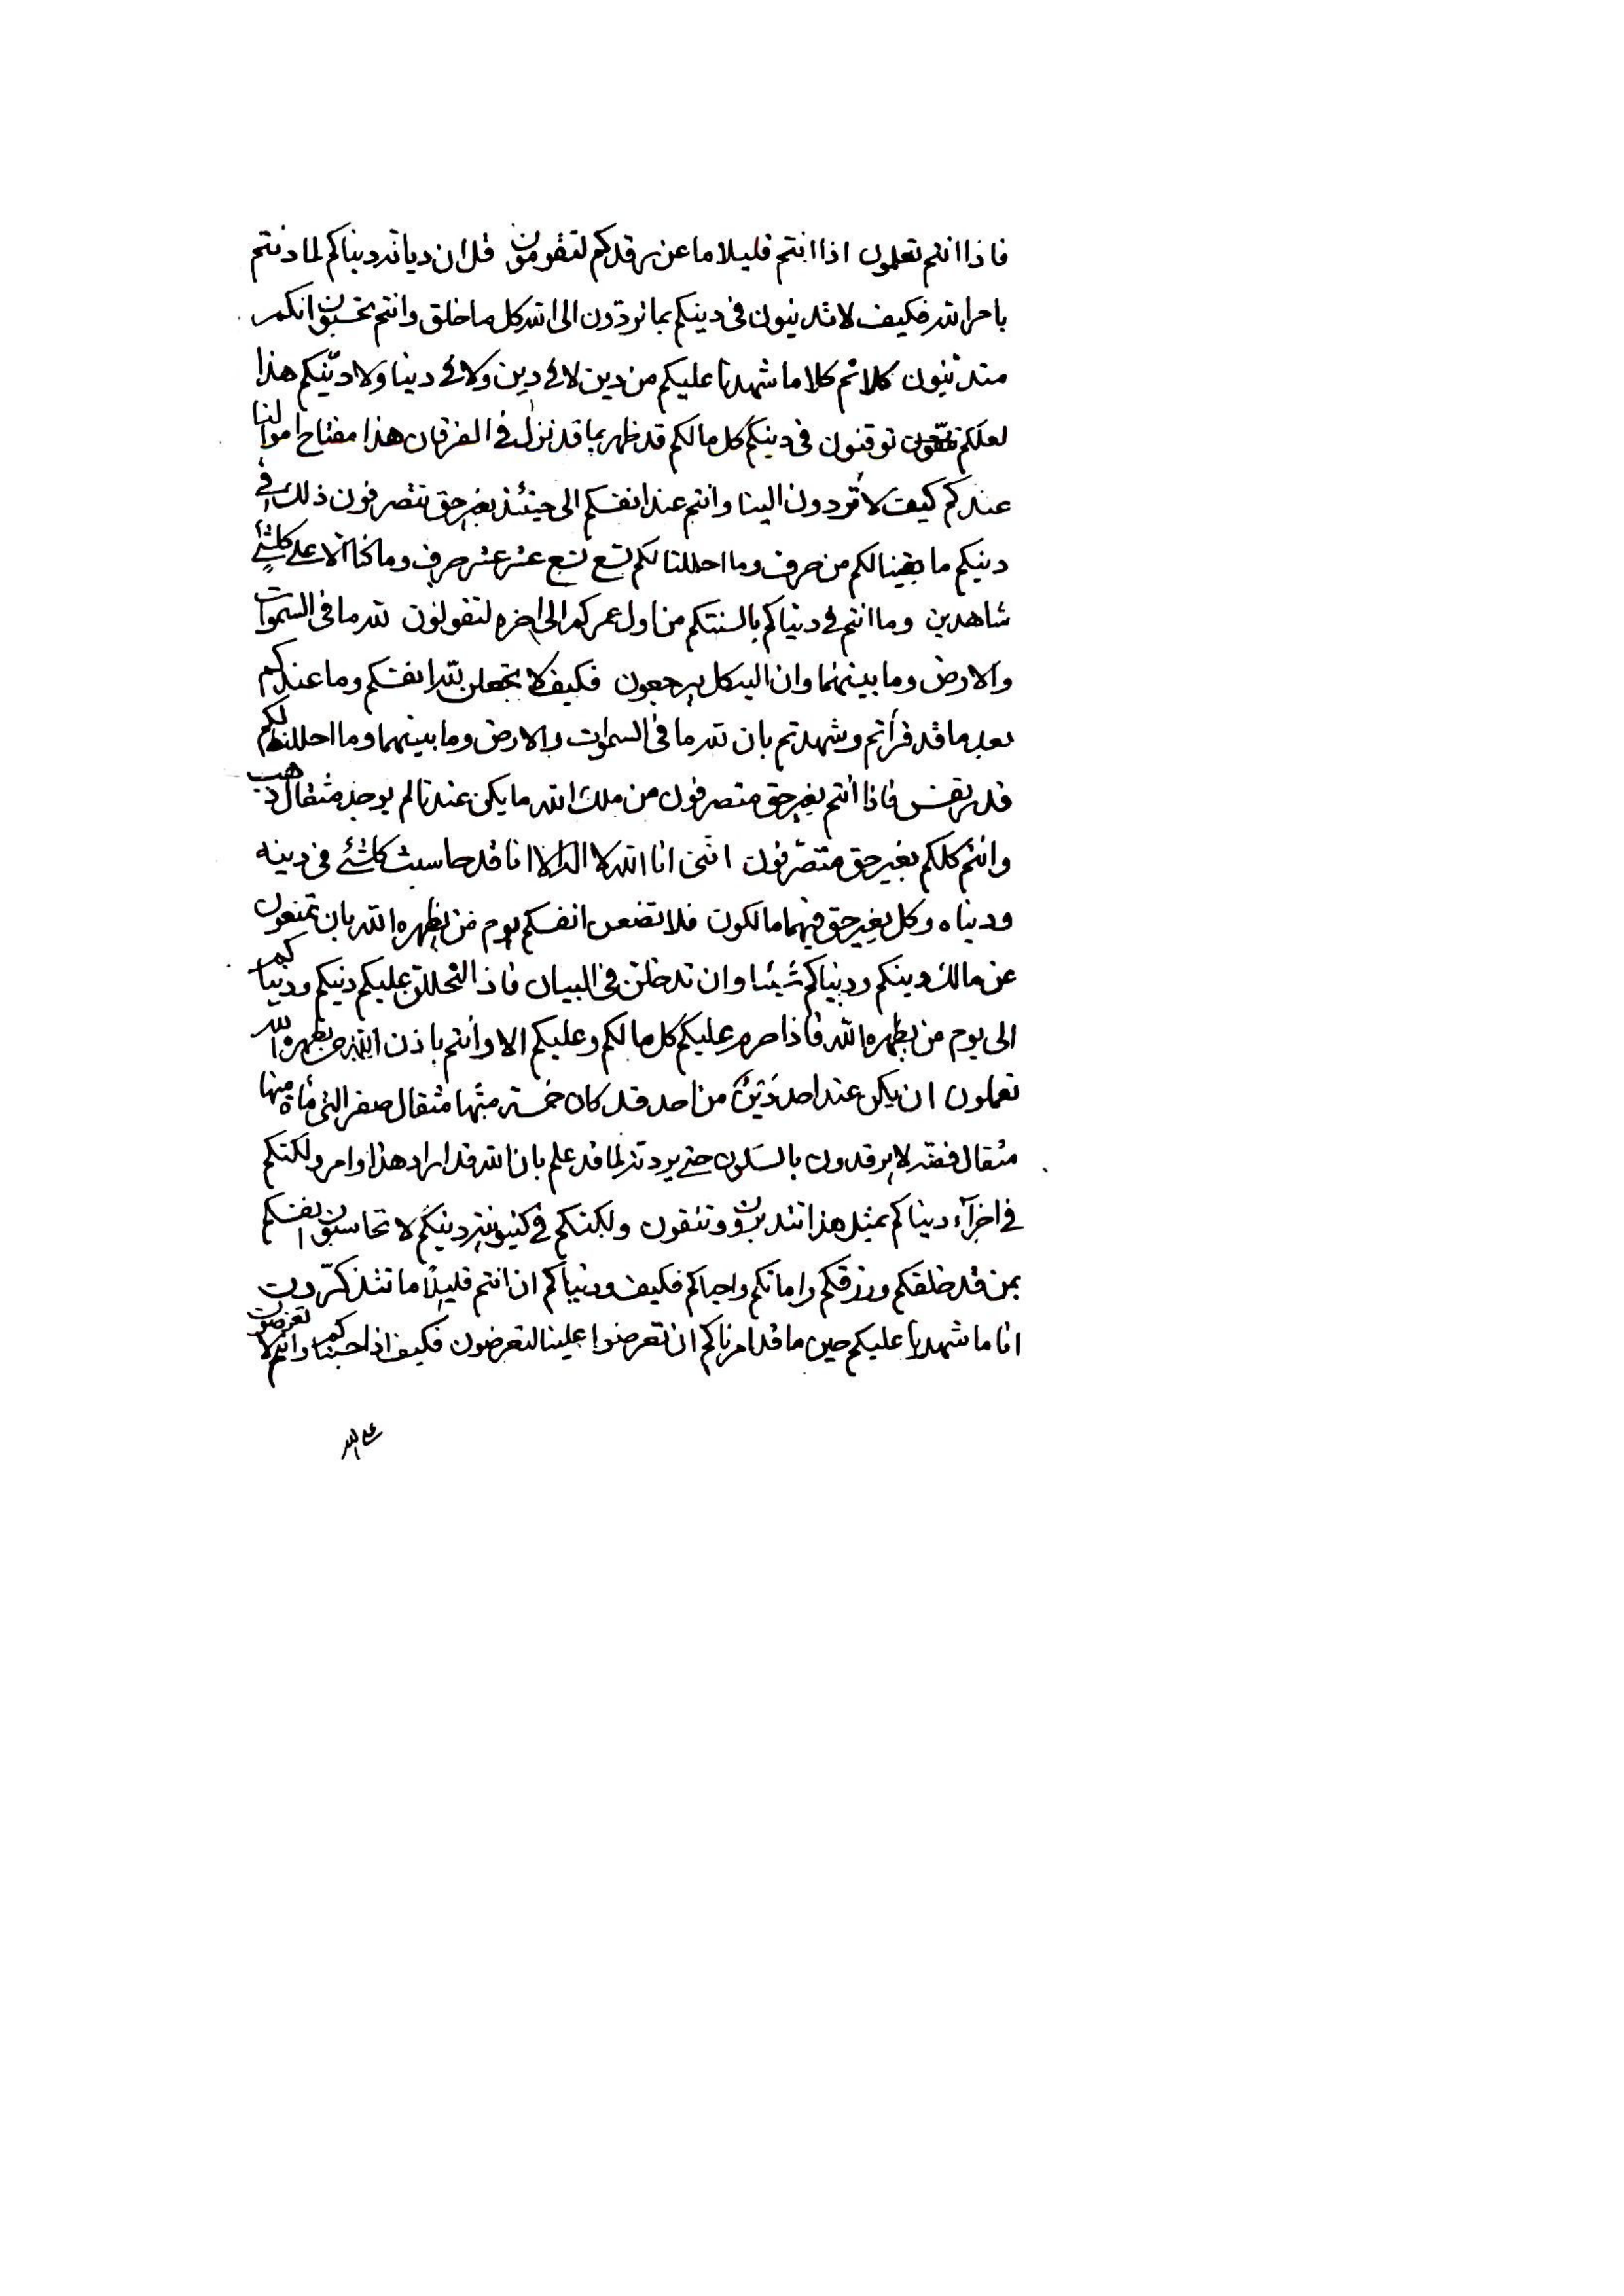 فاذا انتم تعلمون اذا انتم قليلا ما عن رقدكم لتقومون قل ان ديانة دنياكم لما دنتم
بامر الله فكيف لا تدينون في دينكم بما تردون الى الله كل ما خلق وانتم تحسبون انكم
متدينون كلا ثم كلا ما شهدنا عليكم من دين لا في دين ولا في دنيا ولا دينكم هذا
لعلكم توقنون في دينكم كل ما لكم قد ظهر بما قد نزل في الفرقان هذا مفتاح اموالنا
عندكم كيف لا تردون الينا وانتم عند انفسكم الى حينئذ بغير حق تتصرفون ذلك في
دينكم ما بقينا لكم من حرف وما احللنا لكم تسع تسع عشر عشر حرف وما كنا الا على كلشئ
شاهدين وما انتم في دنياكم بالسنتكم من اول عمركم الى اخره لتقولون لله ما في السموات
والارض وما بينهما وان اليه كل يرجعون فكيف لا تجعلن لله انفسكم وما عندكم
بعد ما قد قرأتم وشهدتم بان لله ما في السموات والارض وما بينهما وما احللنا لكم
قدر نفس فاذا انتم بغير حق متصرفون من ملك الله ما يكن عندنا لم يوجد مثقال ذهب
وانتم كلكم بغير حق متصرفون انني انا الله لا اله الا انا قد حاسبت كلشئ في دينه
ودنياه وكل بغير حق فيهما مالكون فلا تضعن انفسكم يوم من يظهره الله بان تمنعون
عن مالك دينكم ودنياكم شيئا وان تدخلن في البيان فاذا لتحللن عليكم دينكم ودنياكم
الى يوم من يظهره الله فاذا حرم عليكم كل ما لكم وعليكم الا وانتم باذن الله من يظهره الله
تعملون ان يكن عند احد دين من احد قد كان خمسة مثقال صفر التي مأة منها
مثقال فضة لا يرقدون بالسكون حتى يرد لما قد علم بان الله قد اراد هذا وامر ولكنكم
في اجراء دنياكم بمثل هذا تتدبرون وتتقون ولكنكم في كينونية دينكم لا تحاسبون انفسكم
بمن قد خلقكم ورزقكم واماتكم واحياكم فكيف ودنياكم ان انتم قليلا ما تتذكرون
انا ما شهدنا عليكم حين ما قد امرناكم ان تعرضوا علينا لتعرضون فكيف اذا احببناكم وانتم لا تعرضون